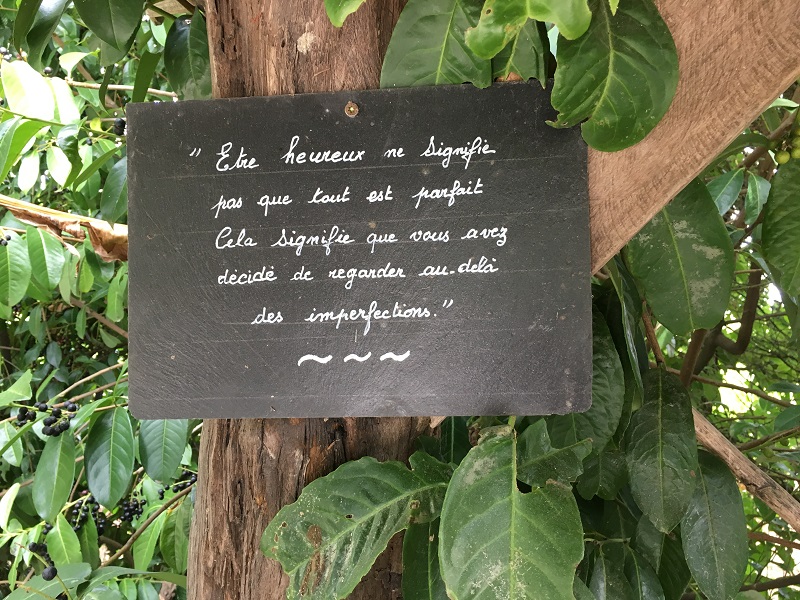 " Etre heureux ne signifie
pas que tout est parfait
Cela signifie que vous avez
décidé de regarder au-delà
des imperfections."
~ ~ ~